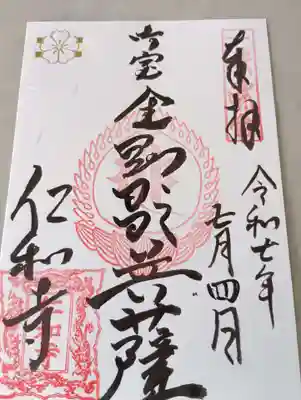 奉拝
令和七年
七月四日
御室
金剛
菩薩
仁和寺